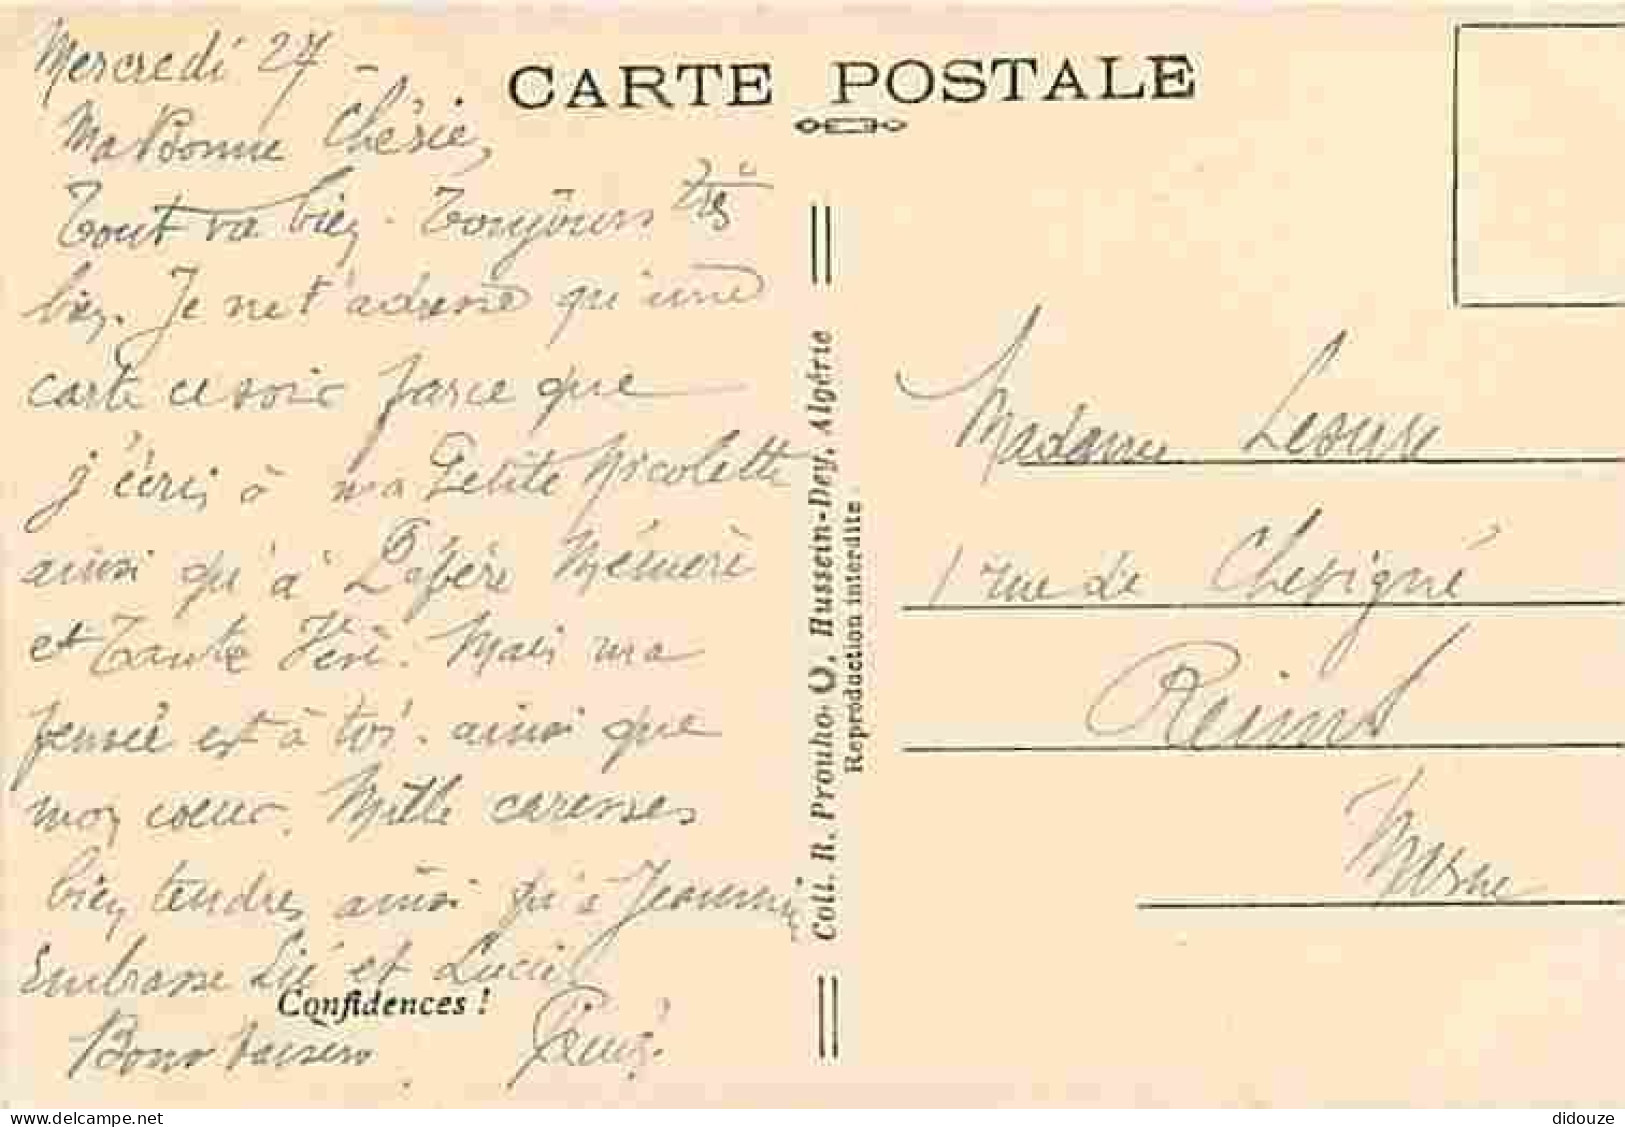 Mercredi 27 -
Ma Bonne Chérie,
Tout va bien. Toujours très
bien. Je ne t'adresse qu'une
carte ce soir parce que
j'écris à ma Petite Nicolette
ainsi qu'à Pépère Mémère
et Tante
Mais ma
pensée est à toi. ainsi que
mon coeur. Mille caresses
bien tendres ainsi qu'à Jeannine
Embrasse et Lucie
Confidences !
Bons baisers
René.
CARTE POSTALE
Coll. R. Prouho O, Hussein-Dey, Algérie
Reproduction interdite
Madame
1 rue de Chevigné
Reims
Marne
didouze